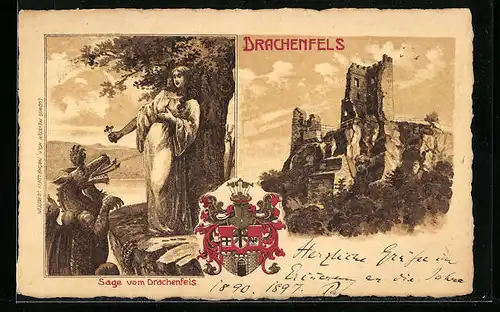 DRACHENFELS
Sage vom Drachenfels.
Herzliche Grüße in
Erinnerung an die Jahre
1890. 1897.